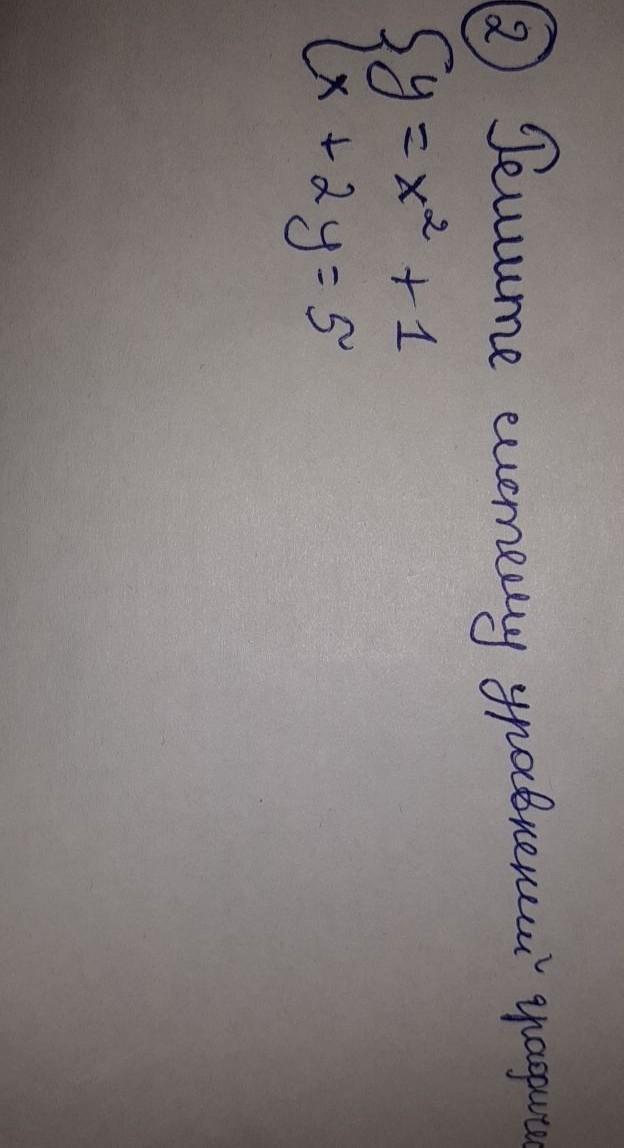 2 Решите систему уравнений графичи
{ y = x² + 1
x + 2y = 5